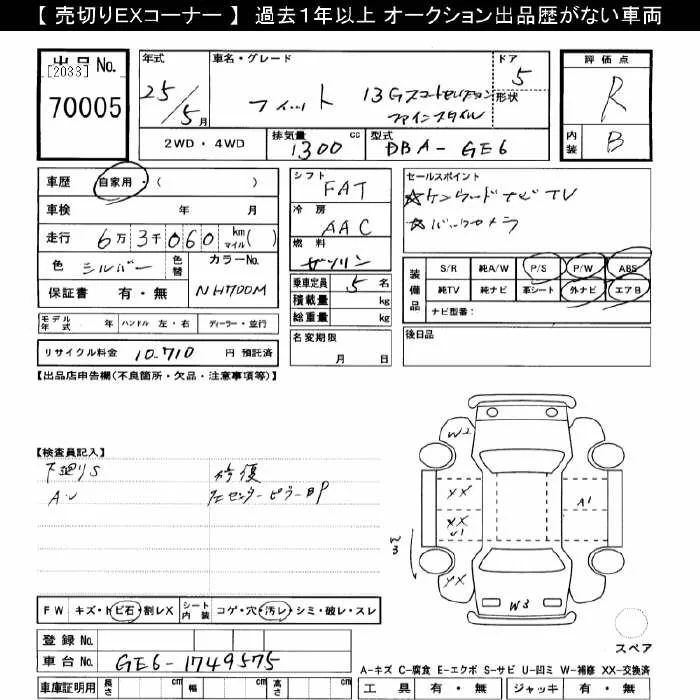 【 売切りEXコーナー 】 過去１年以上 オークション出品歴がない車両
出品 No.
[2033]
70005
年式
25/5月
車名・グレード
フィット 13Gスマートセレクション
ファインスタイル
ドア
5
形状
評価点
R
内装
B
2WD・4WD
排気量 1300 cc
型式 DBA-GE6
車歴 自家用・( )
車検 年 月
走行 6万3千060 km マイル( )
色 シルバー 色替
カラーNo. NH700M
保証書 有・無
シフト FAT
冷房 AAC
燃料 ガソリン
乗車定員 5 名
積載量 kg
総重量 kg
セールスポイント
☆ケンウッドナビTV
☆バックカメラ
装備品
S/R 純A/W P/S P/W ABS
純TV 純ナビ 革シート 外ナビ エアB
ナビ型番：
モデル年式 年 ハンドル 左・右 ディーラー・並行
リサイクル料金 10,710 円 預託済
名変期限
月 日
後日品
【出品店申告欄(不良箇所・欠品・注意事項等)】
【検査員記入】
下廻りS 修復
AU センターピラーBP
W2
XX
XX
U1
XX
W3
A1
W3
スペア
FW キズ・トビ石・割レX シート内装 コゲ・穴・汚レ・シミ・破レ・スレ
登録 No.
車台 No. GE6-1749575
車庫証明用 長さ cm 幅 cm 高さ cm
A-キズ C-腐食 E-エクボ S-サビ U-凹ミ W-補修 XX-交換済
工具 有・無 ジャッキ 有・無